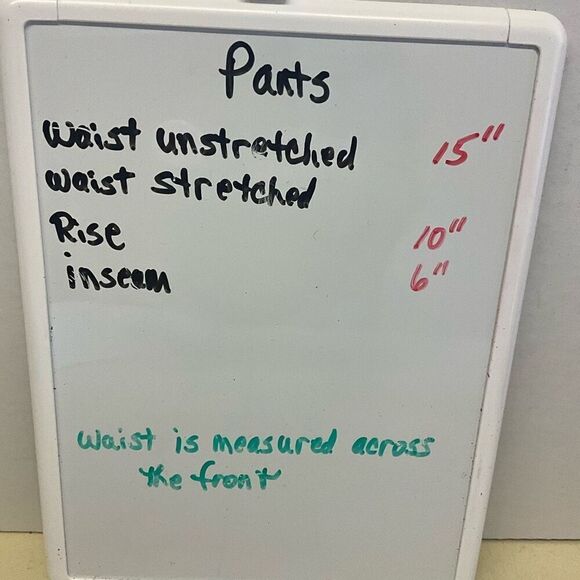 Pants
waist unstretched 15"
waist stretched
Rise 10"
inseam 6"
waist is measured across
the front